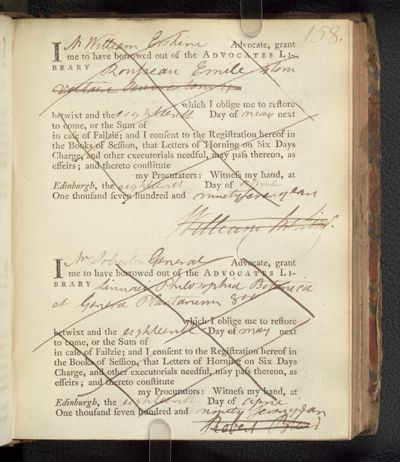 158.
I Mr William Erskine Advocate, grant
me to have borrowed out of the ADVOCATES LI-
BRARY Rousseau Emile
which I oblige me to restore
betwixt and the eighteenth Day of may next
to come, or the Sum of
in case of Failzie; and I consent to the Registration hereof in
the Books of Session, that Letters of Horning on Six Days
Charge, and other executorials needful, may pass thereon, as
effeirs; and thereto constitute
my Procurators: Witness my hand, at
Edinburgh, the eighteenth Day of April
One thousand seven hundred and ninety seven years
William Erskine
I Mr Solicitor General Advocate, grant
me to have borrowed out of the ADVOCATES LI-
BRARY Linnaei Philosophia Botanica
et Genera Plantarum
which I oblige me to restore
betwixt and the eighteenth Day of may next
to come, or the Sum of
in case of Failzie; and I consent to the Registration hereof in
the Books of Session, that Letters of Horning on Six Days
Charge, and other executorials needful, may pass thereon, as
effeirs; and thereto constitute
my Procurators: Witness my hand, at
Edinburgh, the eighteenth Day of April
One thousand seven hundred and ninety seven years
Robert